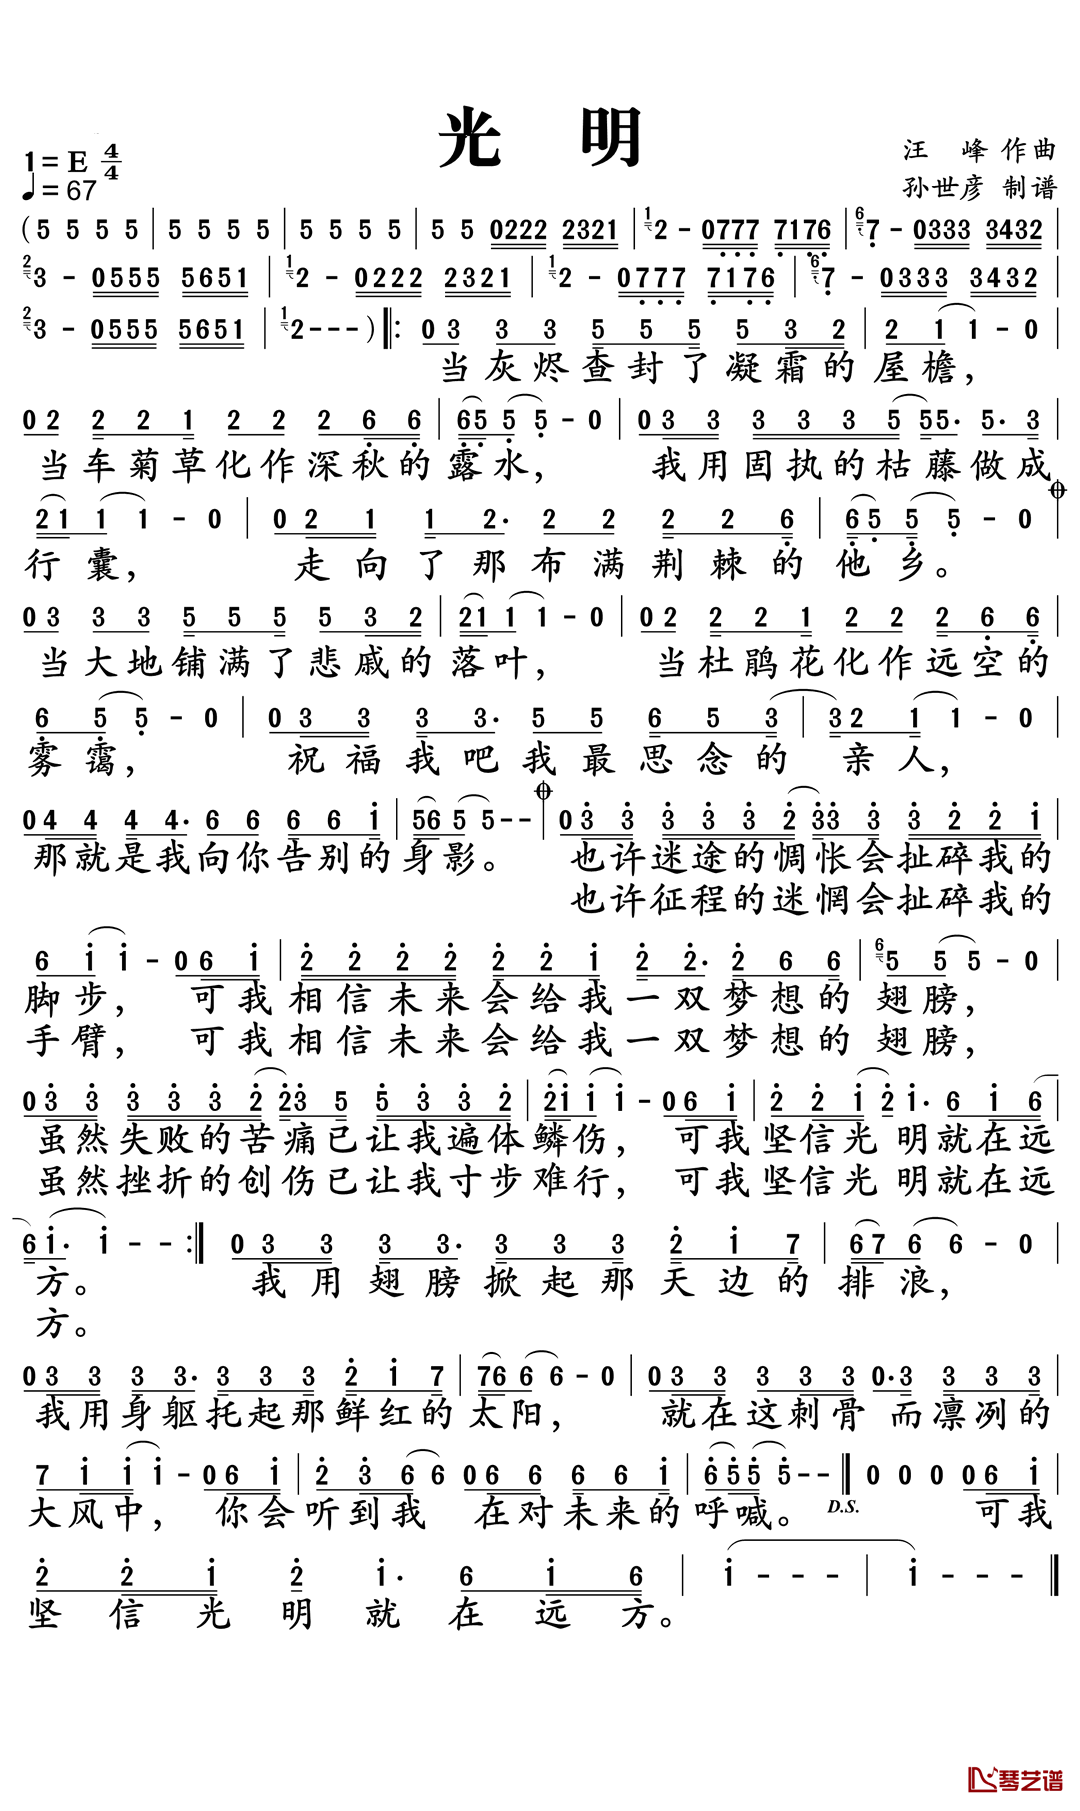 光 明
1=E 4/4
♩=67
汪 峰 作曲
孙世彦 制谱
(5 5 5 5 | 5 5 5 5 | 5 5 5 5 | 5 5 0222 2321 | 1 2 - 0777 7176 | 6 7 - 0333 3432 |
2 3 - 0555 5651 | 1 2 - 0222 2321 | 1 2 - 0777 7176 | 6 7 - 0333 3432 |
2 3 - 0555 5651 | 1 2 - - - ) |: 0 3 3 3 5 5 5 5 3 2 | 2 1 1 - 0 |
当灰烬查封了凝霜的屋檐，
0 2 2 2 1 2 2 2 6 6 | 65 5 5 - 0 | 0 3 3 3 3 3 5 55. 5. 3 |
当车菊草化作深秋的露水， 我用固执的枯藤做成
21 1 1 - 0 | 0 2 1 1 2. 2 2 2 2 6 | 65 5 5 - 0 |
行囊， 走向了那布满荆棘的他乡。
0 3 3 3 5 5 5 5 3 2 | 21 1 1 - 0 | 0 2 2 2 1 2 2 2 6 6 |
当大地铺满了悲戚的落叶， 当杜鹃花化作远空的
6 5 5 - 0 | 0 3 3 3 3. 5 5 6 5 3 | 32 1 1 - 0 |
雾霭， 祝福我吧我最思念的亲人，
0 4 4 4 4. 6 6 6 6 1 | 56 5 5 - - | 0 3 3 3 3 3 2 33 3 3 2 2 1 |
那就是我向你告别的身影。 也许迷途的惆怅会扯碎我的
也许征程的迷惘会扯碎我的
6 1 1 - 0 6 1 | 2 2 2 2 2 2 1 2 2. 2 6 6 | 6 5 5 5 - 0 |
脚步， 可我相信未来会给我一双梦想的翅膀，
手臂， 可我相信未来会给我一双梦想的翅膀，
0 3 3 3 3 3 2 23 5 5 3 3 2 | 21 1 1 - 0 6 1 | 2 2 1 2 1. 6 1 6 |
虽然失败的苦痛已让我遍体鳞伤， 可我坚信光明就在远
虽然挫折的创伤已让我寸步难行， 可我坚信光明就在远
6 1. 1 - - :| 0 3 3 3 3. 3 3 3 2 1 7 | 67 6 6 - 0 |
方。 我用翅膀掀起那天边的排浪，
方。
0 3 3 3 3. 3 3 3 2 1 7 | 76 6 6 - 0 | 0 3 3 3 3 3 0. 3 3 3 3 |
我用身躯托起那鲜红的太阳， 就在这刺骨而凛冽的
7 1 1 1 - 0 6 1 | 2 3 6 6 0 6 6 6 6 1 | 65 5 5 - - || 0 0 0 0 6 1 |
大风中， 你会听到我在对未来的呼喊。 D.S. 可我
2 2 1 2 1. 6 1 6 | 1 - - - | 1 - - - ||
坚信光明就在远方。
琴艺谱